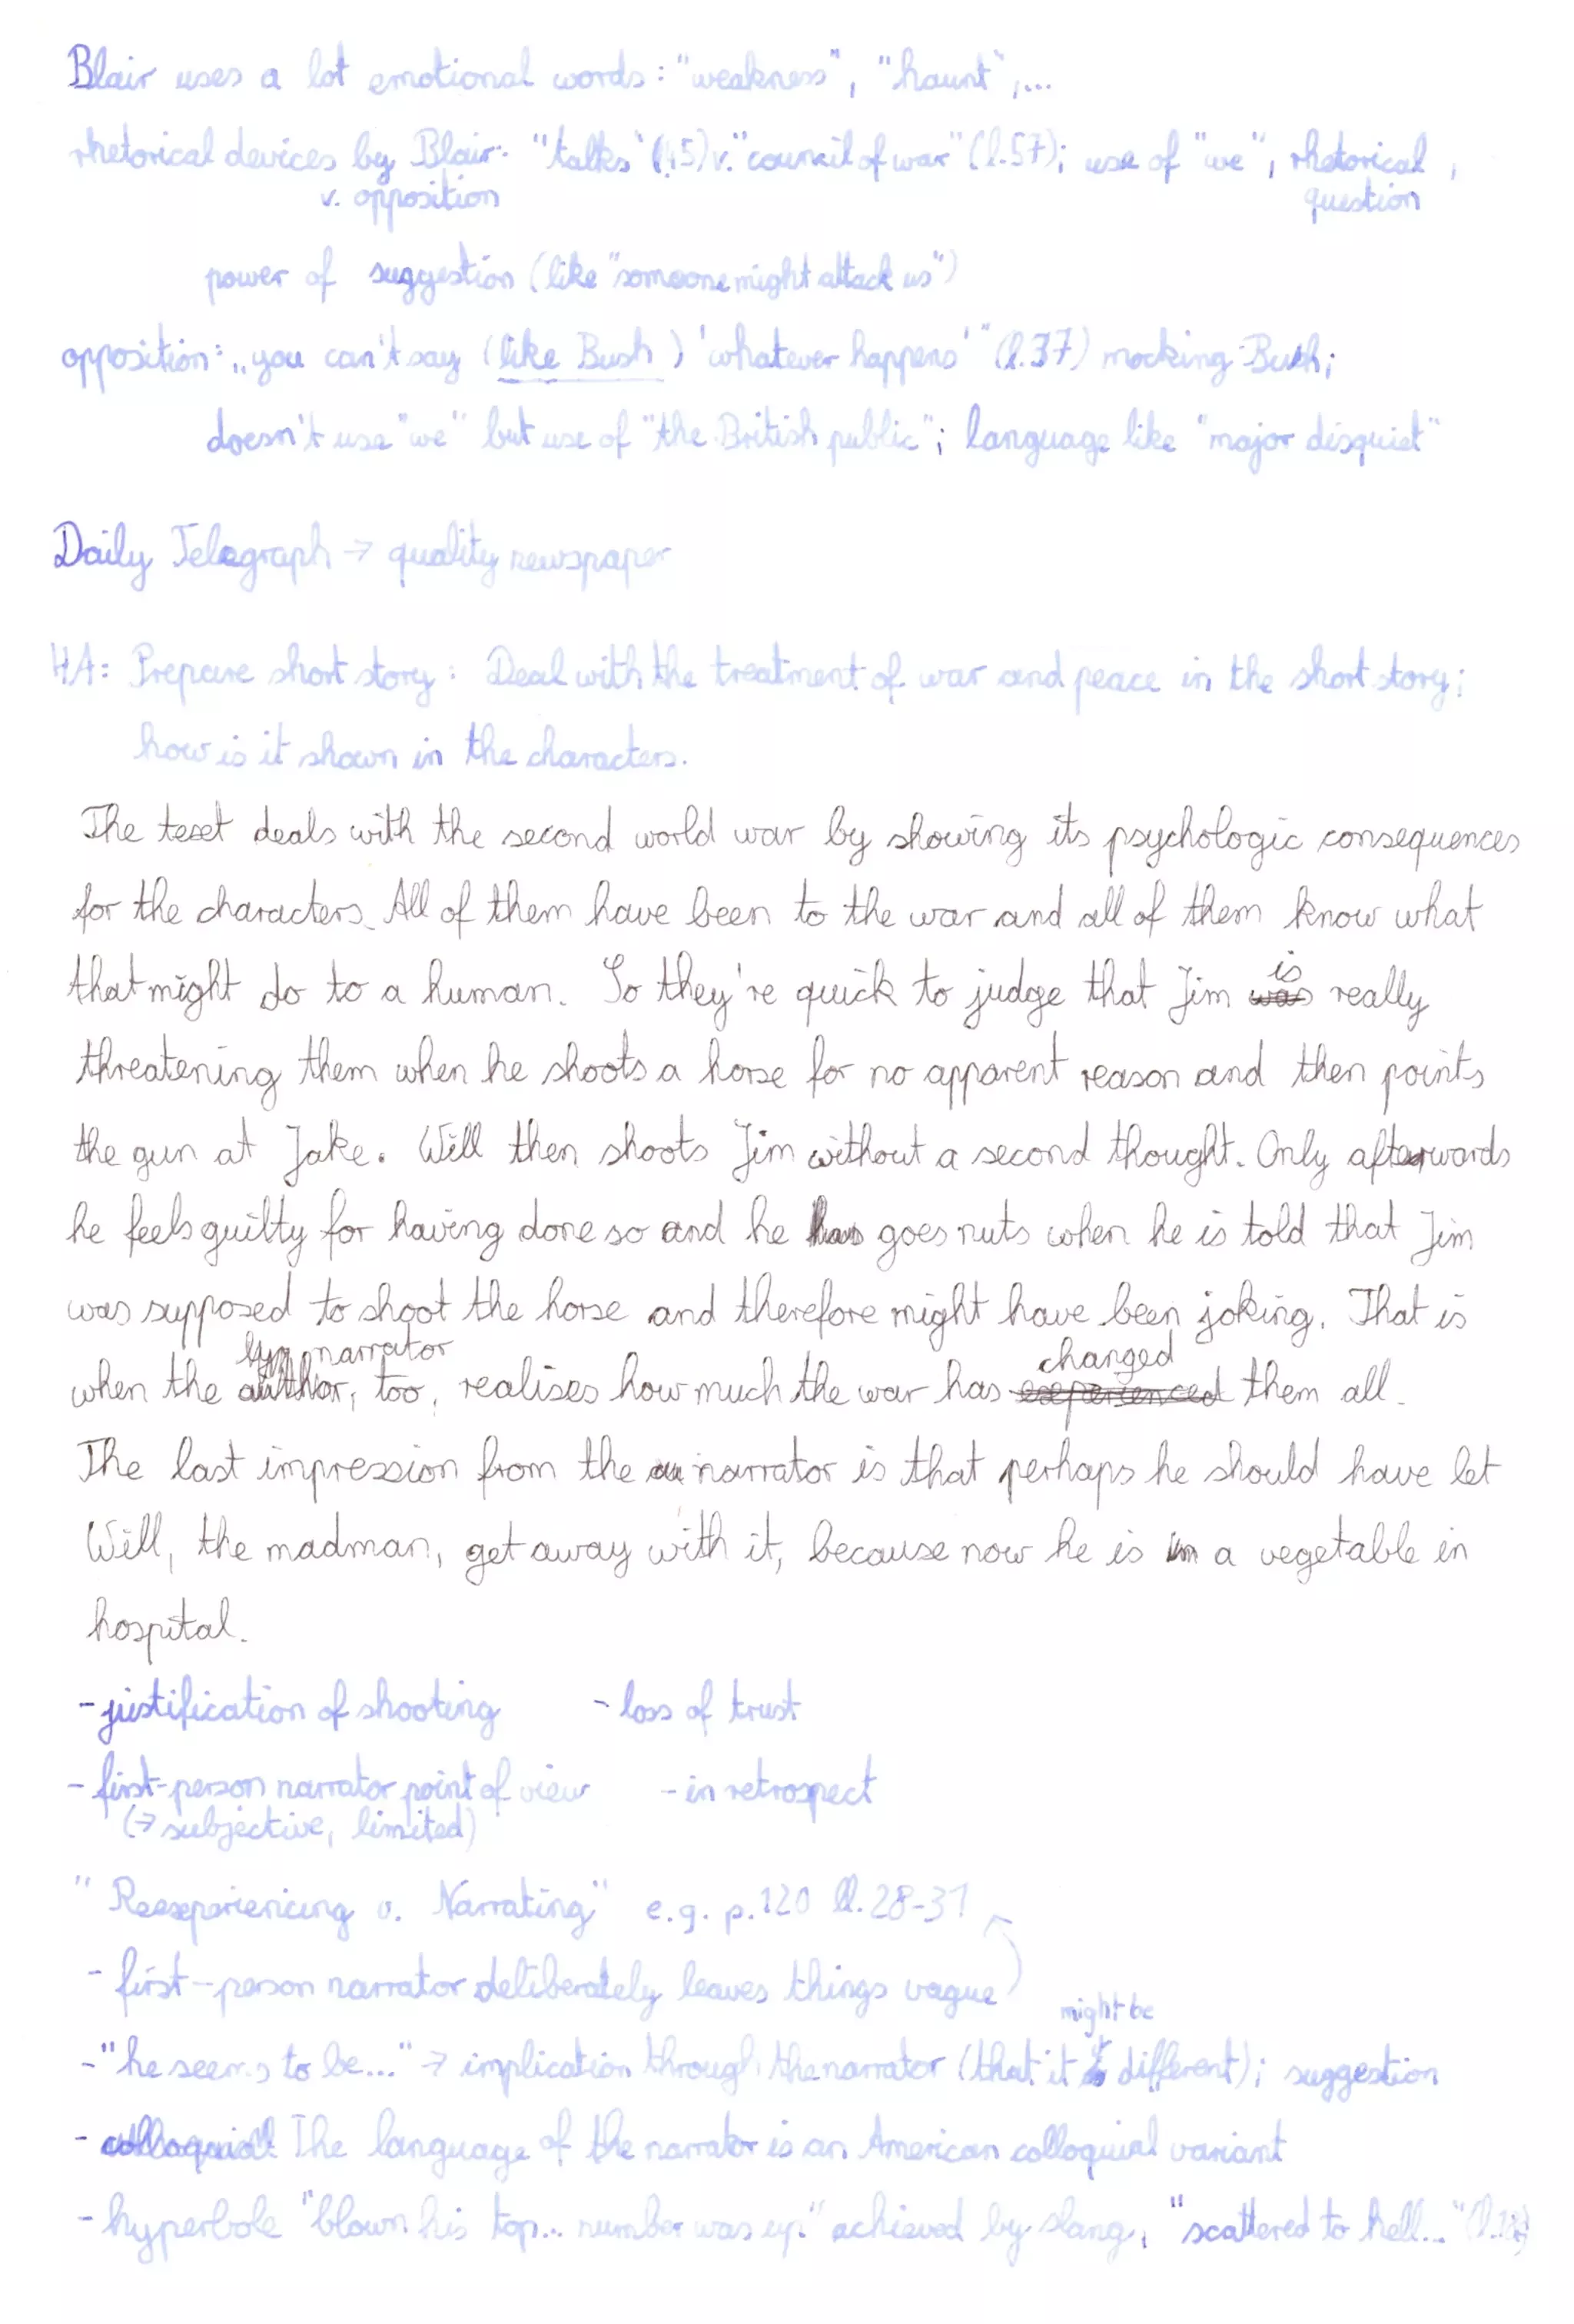 Blair uses a lot emotional words: "weakness", "haunt",...
rhetorical devices by Blair: "talks" (45) v. "council of war" (l.57); use of "we", rhetorical question,
v. opposition
power of suggestion (like "someone might attack us")
opposition: „you can't say (like Bush) 'whatever happens'" (l.37) mocking Bush;
doesn't use "we" but use of "the British public"; language like "major disquiet"
Daily Telegraph → quality newspaper
HA: Prepare short story: Deal with the treatment of war and peace in the short story;
how is it shown in the characters.
The text deals with the second world war by showing its psychologic consequences
for the characters. All of them have been to the war and all of them know what
that might do to a human. So they're quick to judge that Jim was is really
threatening them when he shoots a horse for no apparent reason and then points
the gun at Jake. Will then shoots Jim without a second thought. Only afterwards
he feels guilty for having done so and he has goes nuts when he is told that Jim
was supposed to shoot the horse and therefore might have been joking. That is
when the author, narrator too, realises how much the war has experienced changed them all.
The last impression from the au narrator is that perhaps he should have let
Will, the madman, get away with it, because now he is in a vegetable in
hospital.
- justification of shooting - loss of trust
- first-person narrator point of view - in retrospect
(→ subjective, limited)
"Reexperiencing v. Narrating" e.g. p.120 ll.28-31
- first-person narrator deliberately leaves things vague
- "he seems to be..." → implication through the narrator (that it might be different); suggestion
- colloquial The language of the narrator is an American colloquial variant
- hyperbole "blown his top... number was up" achieved by slang, "scattered to hell..."